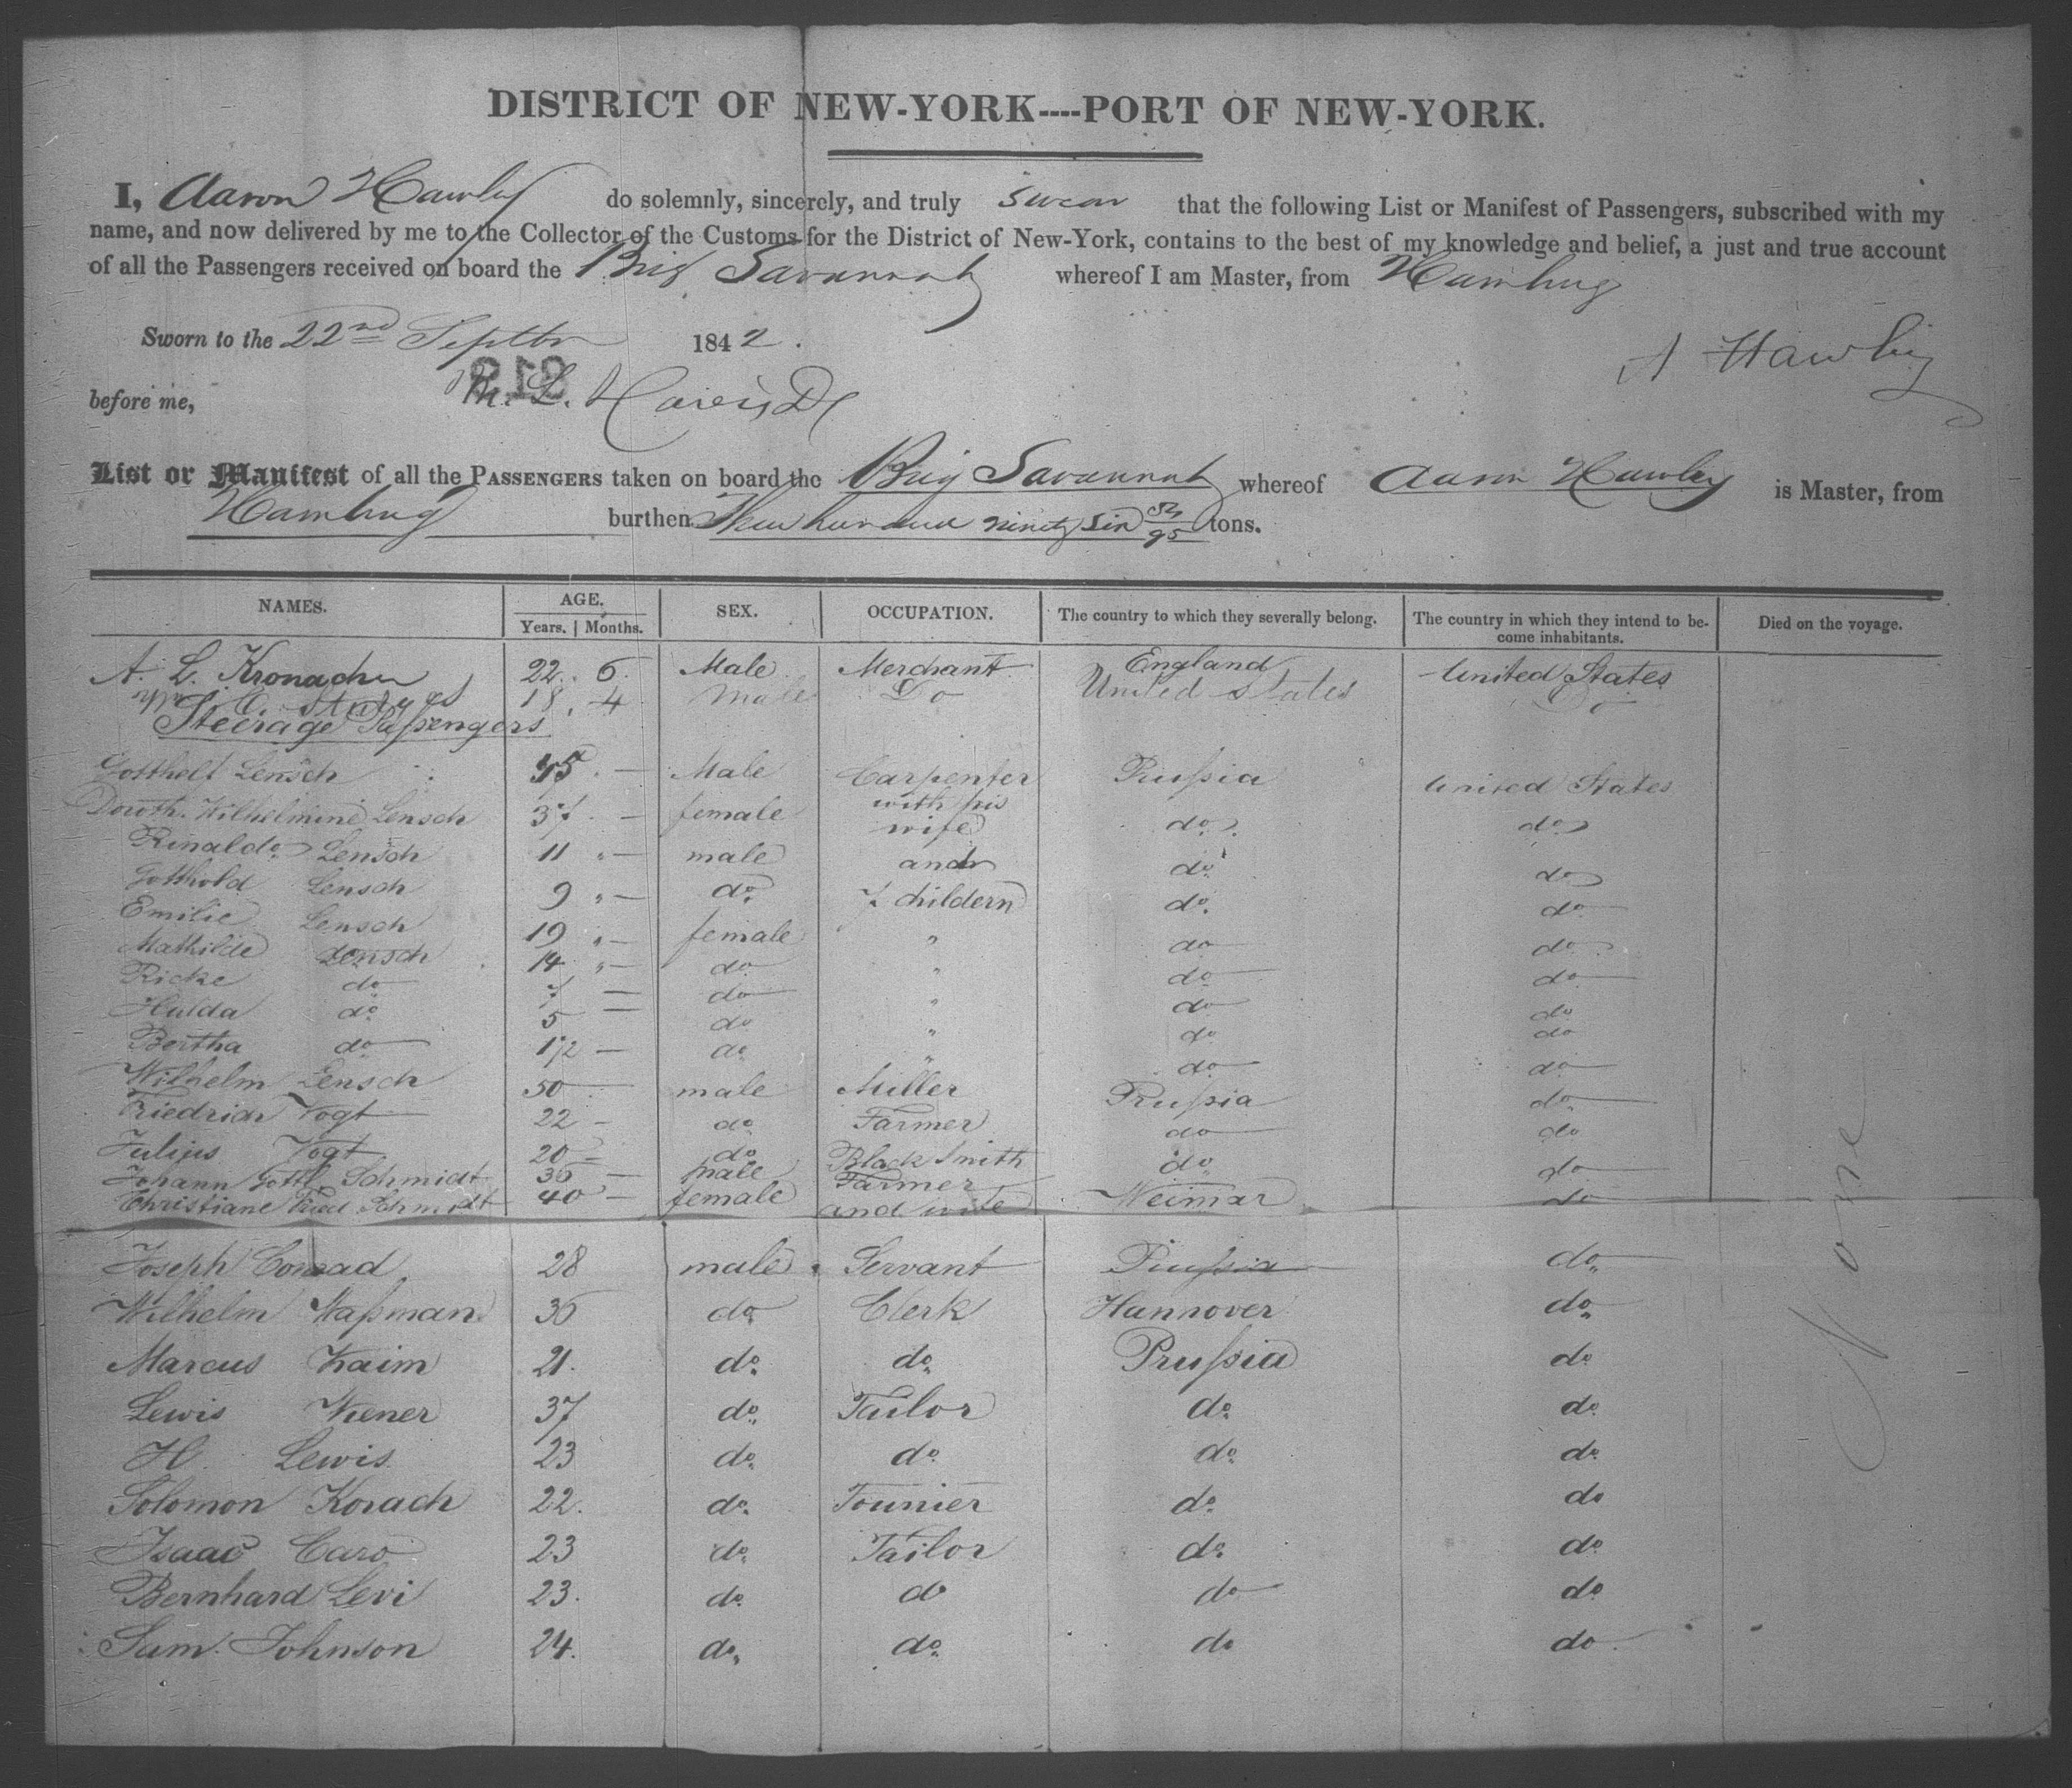 DISTRICT OF NEW-YORK----PORT OF NEW-YORK.
I, Aaron Hawley do solemnly, sincerely, and truly swear that the following List or Manifest of Passengers, subscribed with my
name, and now delivered by me to the Collector of the Customs for the District of New-York, contains to the best of my knowledge and belief, a just and true account
of all the Passengers received on board the Brig Savannah whereof I am Master, from Hamburg
Sworn to the 22nd Septbr 1842.
A Hawley
before me,
List or Manifest of all the PASSENGERS taken on board the Brig Savannah whereof Aaron Hawley is Master, from
Hamburg burthen hundred ninety six /95 tons.
NAMES. AGE. SEX. OCCUPATION. The country to which they severally belong. The country in which they intend to be- Died on the voyage.
Years. | Months. come inhabitants.
A. L. Kronacher 22. 6. Male Merchant England United States
Wm C. 18. 4 Male Do United States Do
Steerage Passengers
Gotthelf Lensch 45. — Male Carpenter Prussia United States
Doroth. Wilhelmine Lensch 37. — female with his wife do. do
Rinaldo Lensch 11 " — male and do do
Gotthold Lensch 9 " — do 7 childern do. do
Emilie Lensch 19 " — female " do do
Mathilde Lensch 14 " — do " do do
Ricke do 7 — do " do do
Hulda do 5 — do " do do
Bertha do 1/2 — do " do do
Wilhelm Lensch 50 male Miller Prussia do
Friedrich Vogt 22 — do Farmer do do
Julius Vogt 20 — do Black Smith do do
Johann Gottl. Schmidt 36 — male Farmer
Christiane Fried. Schmidt 40 — female and wife Weimar do
Joseph Conrad 28 male Servant Prussia do
Wilhelm Wassman 36 do Clerk Hannover do
Marcus Kaim 21. do do Prussia do
Lewis Wiener 37 do Tailor do do
H. Lewis 23 do do do do
Solomon Korach 22. do Tounier do do
Isaac Caro 23 do Tailor do do
Bernhard Levi 23. do do do do
Sam. Johnson 24. do do do do
None